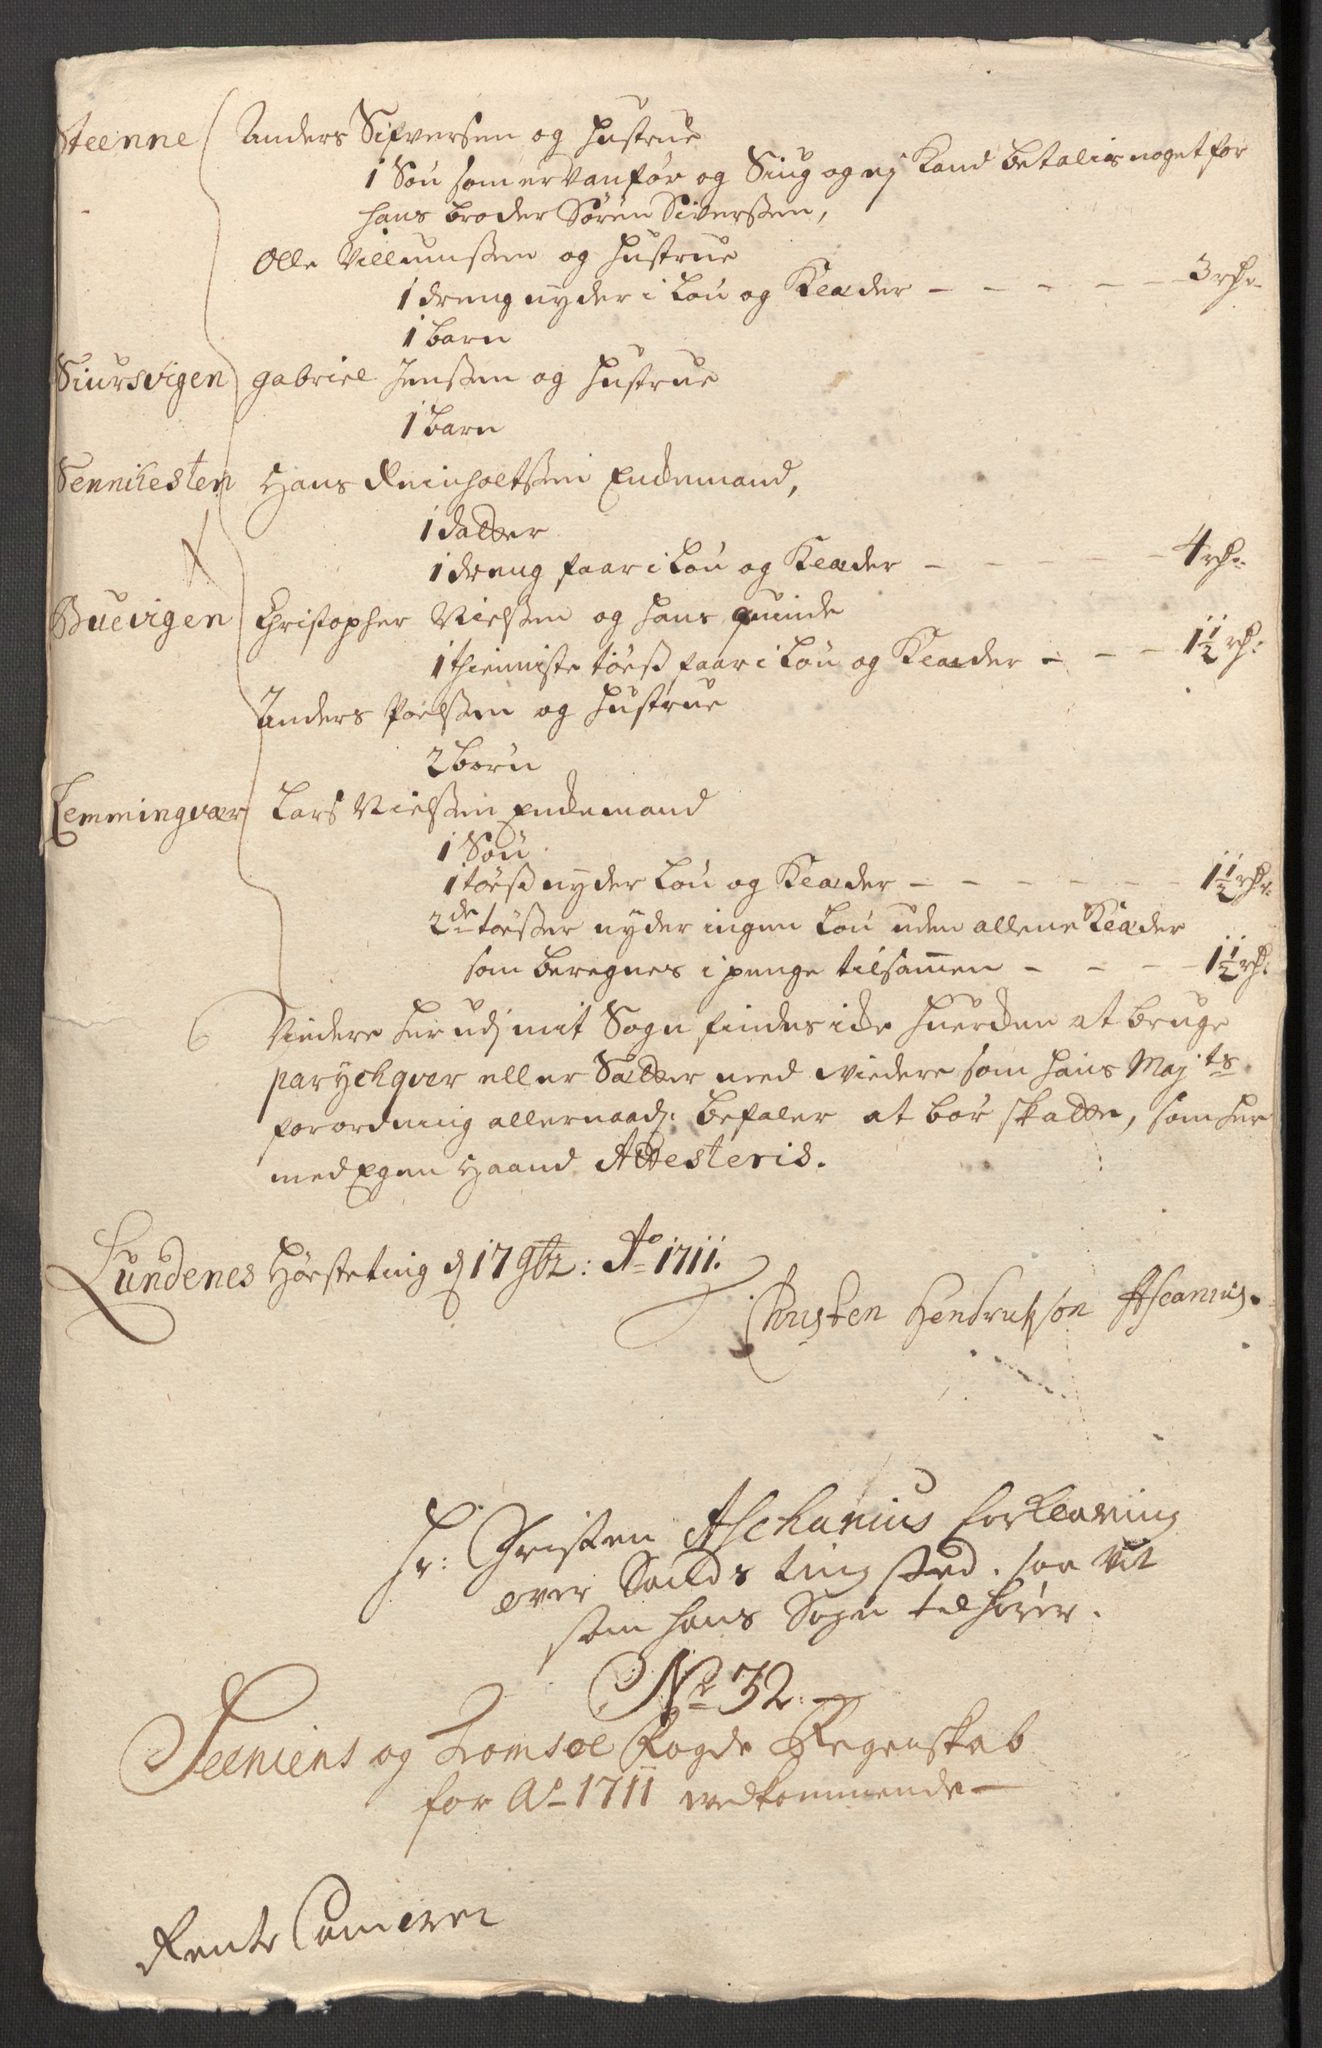 Steenne Anders Sifversen og hustrue
1 Søn som er vanfør og Siug og ej Kand betalis noget for
hans broder Sören Siversen,
Olle Villumsen og hustrue
1 dreng nyder i Løn og Klæder - - - - - 3 rdr
1 barn
Siursvigen gabriel Jensen og hustrue
1 barn
Sennikesten Hans Reinholtsen Enckemand,
1 datter
1 dreng faar i Løn og Klæder - - - - 4 rdr.
Buevigen Christopher Nielsen og hans quinde
1 thienniste tøes faar i Løn og Klæder - - - 1½ rdr:
Anders Poelsen og hustrue
2 børn
Lemmingvær Lars Nielsen Enckemand
1 Søn
1 tøes nyder Løn og Klæder - - - - - - 1½ rdr.
2de tøeser nyder ingen Løn uden allene Klæder
som beregnes i penge tilsammen - - - - 1½ rdr:
6 Viedere her udj mit Sogn findes icke huerken at bruge
parychqver eller Sætter med viedere som hans Maj:ts
forordning allernaadj: befaler at bør skatte, som her
med Egen Haand Attesteris.
Lundenes Høsteting d 17 9br: Ao 1711.
Christen Hendrichsøn Ascanius.
Hr: Christen Aschanius forklaring
over Sands tingsted. saa vit
som hans Sogn tilhører.
No 32.
Senniens og Tromsøe Fogde Regenskab
for Ao 1711 vedkommende
Rente Cammeret